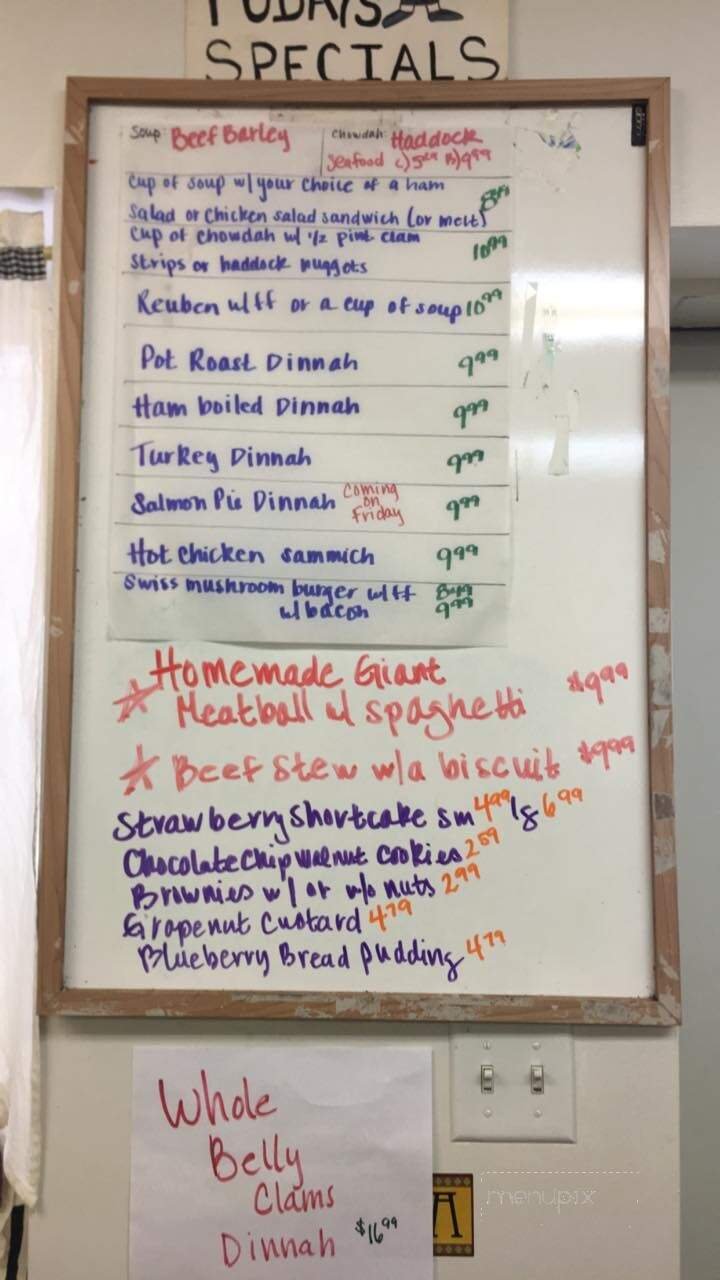 TODAYS
SPECIALS
Soup: Beef Barley
Chowdah: Haddock
Seafood c) 5.99 B) 9.99
Cup of soup w/ your choice of a ham
Salad or Chicken salad sandwich (or melt)
Cup of Chowdah w/ 1/2 pint clam 10.99
Strips or haddock nuggots
Reuben w/ff or a cup of soup 10.99
Pot Roast Dinnah 9.99
Ham boiled Dinnah 9.99
Turkey Dinnah 9.99
Salmon Pie Dinnah Coming on Friday 9.99
Hot chicken sammich 9.99
Swiss mushroom burger w/ff 8.49
w/bacon 9.99
Homemade Giant
Meatball w/ spaghetti $9.99
Beef Stew w/a biscuit $9.99
Strawberry Shortcake sm 4.99 lg 6.99
Chocolate Chip Walnut Cookies 2.59
Brownies w/ or w/o nuts 2.99
Grapenut Custard 4.79
Blueberry Bread Pudding 4.79
Whole
Belly
Clams
Dinnah $16.99
A
menupix